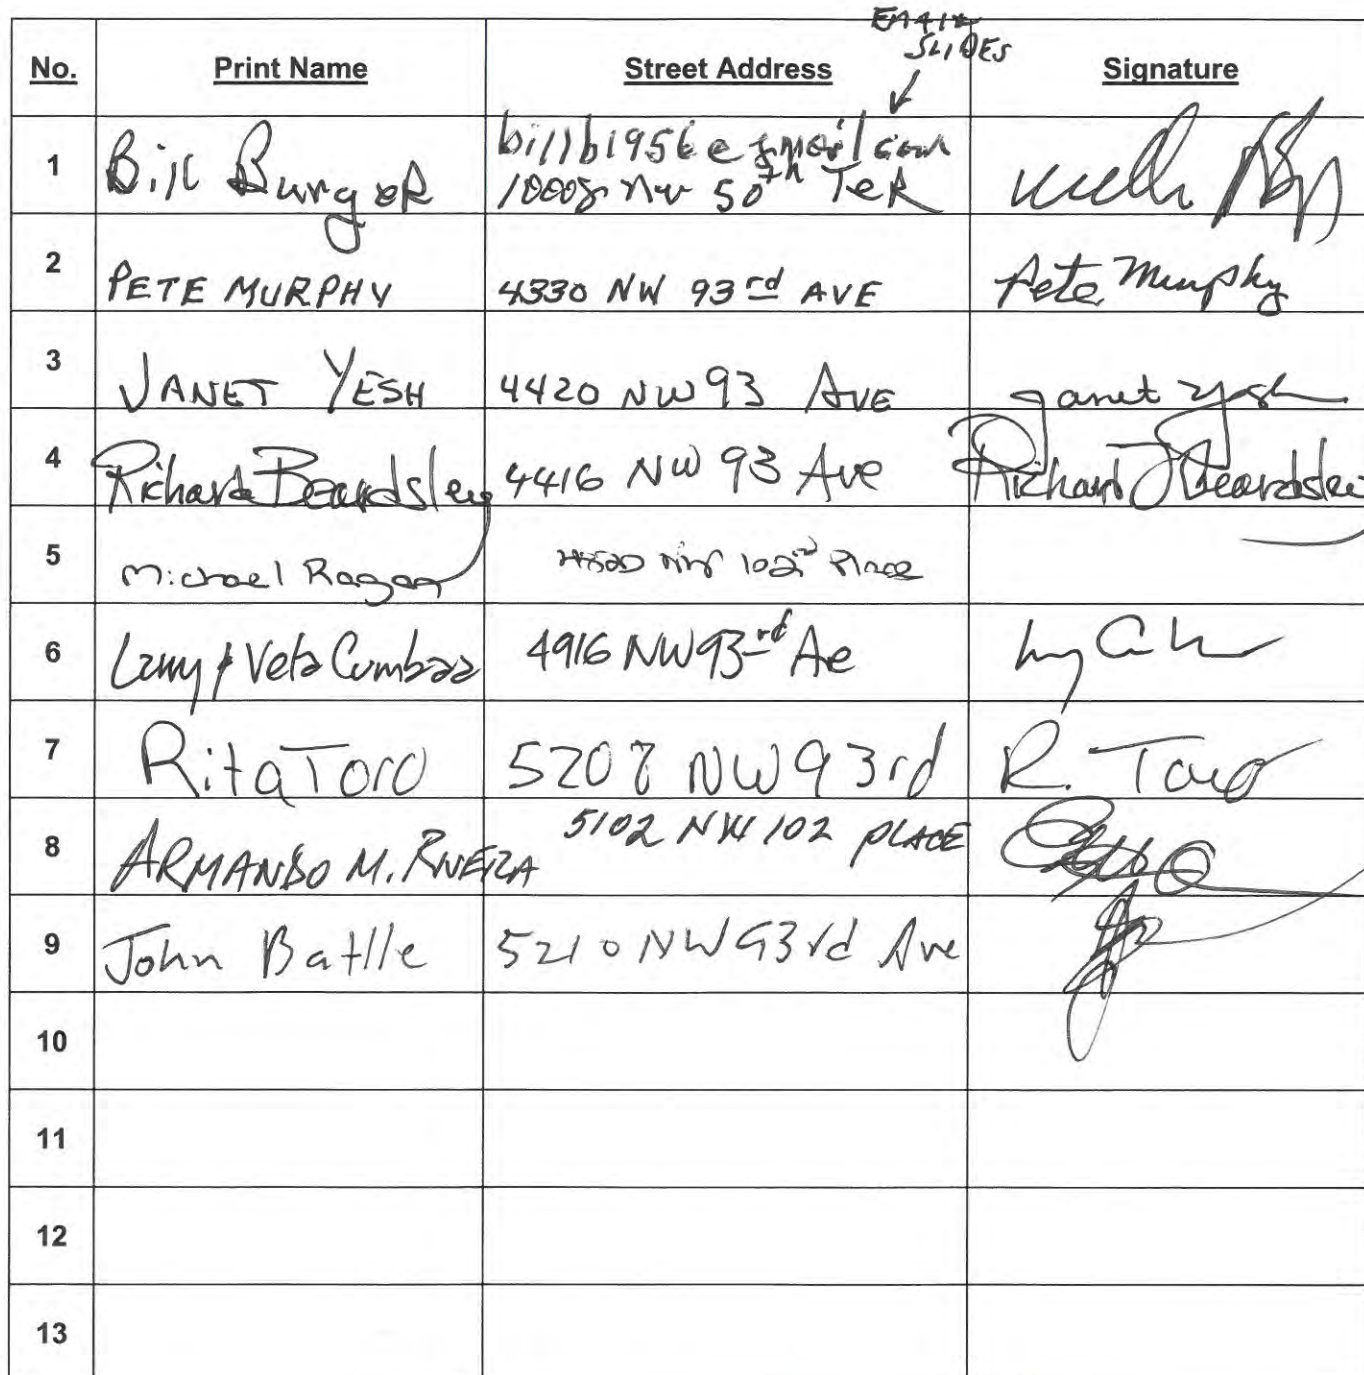 EMAIL
SLIDES
No. Print Name Street Address Signature
1 Bill Burger billb1956@gmail.com
10008 NW 50th Ter
2 PETE MURPHY 4330 NW 93rd AVE Pete Murphy
3 JANET YESH 4420 NW 93 AVE Janet Yesh
4 Richard Beardsley 4416 NW 93 Ave Richard J Beardsley
5 Michael Ragan NW 102nd Place
6 Larry & Veta Cumbaa 4916 NW 93rd Ae
7 Rita Toro 5208 NW 93rd R. Toro
8 ARMANDO M. RIVERA 5102 NW 102 PLACE
9 John Batlle 5210 NW 93rd Ave
10
11
12
13